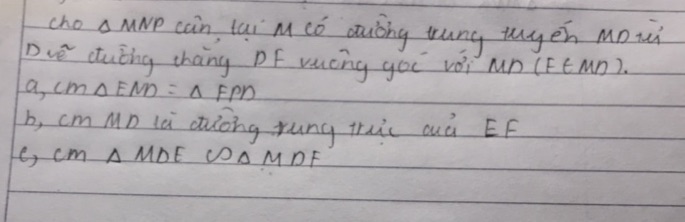 cho Δ MNP cân tại M có đường trung tuyến MD từ
D vẽ đường thẳng DF vuông góc với MD (F ∈ MD).
a, cm Δ END = Δ FPD
b, cm MD là đường trung trực của EF
c, cm Δ MDE ∽ Δ MDF